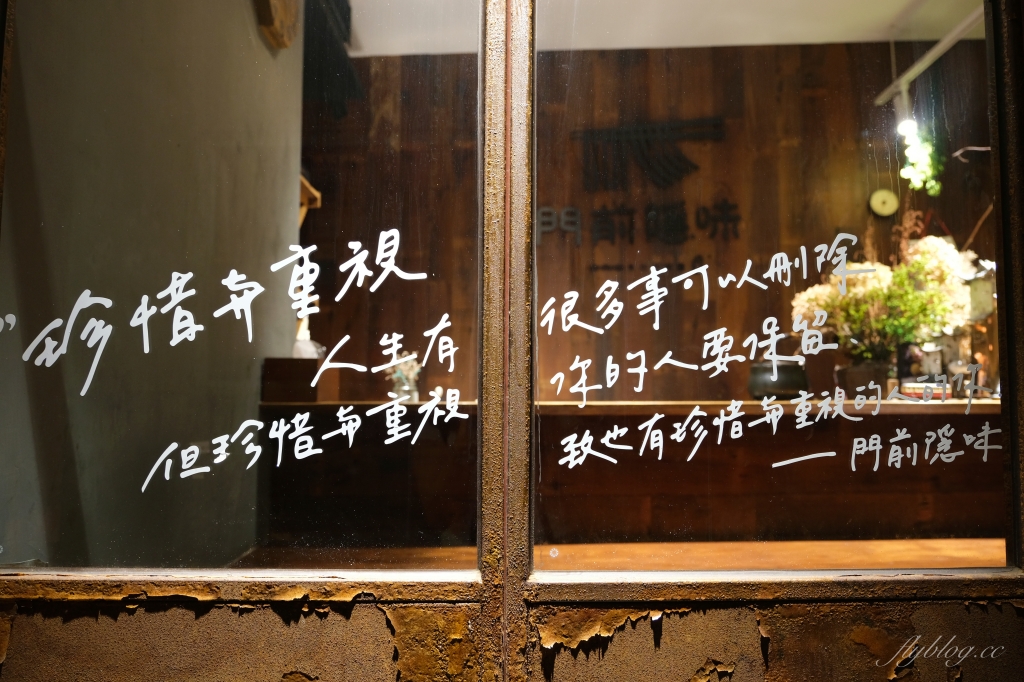 珍惜與重視
人生有 很多事可以刪除
但珍惜與重視 你的人要保留
致也有珍惜與重視的人的你
— 門前隱味
門前隱味
flyblog.cc